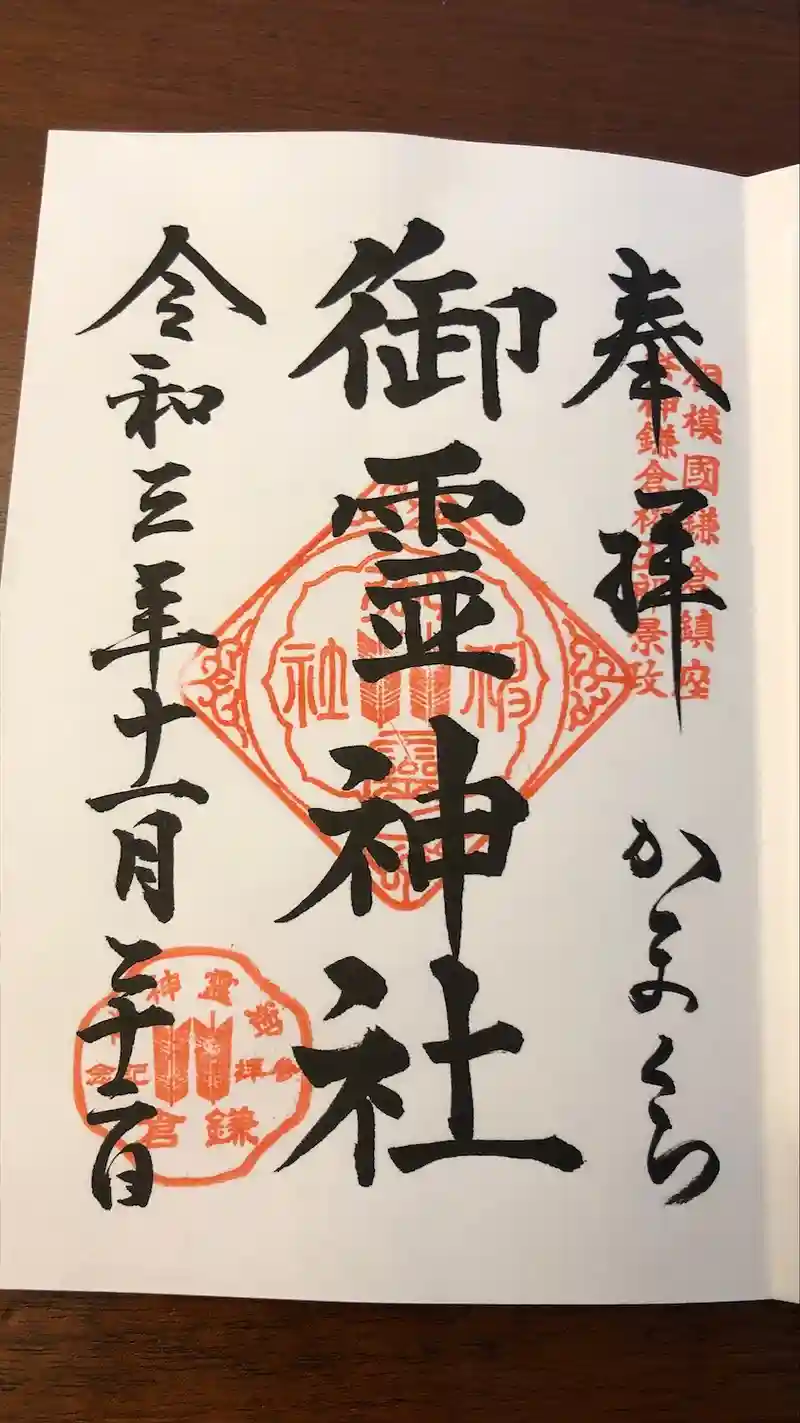 奉拝 かまくら
相模國鎌倉鎮座
祭神鎌倉権五郎景政
御霊神社
令和三年十一月二十二日
御靈神社
御靈神社
参拝記念
鎌倉